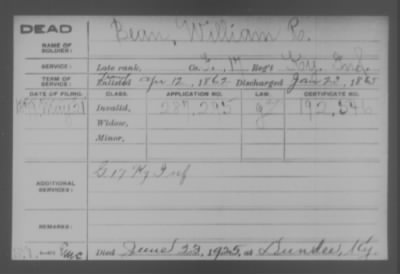 DEAD
NAME OF SOLDIER: Bean, William R.
SERVICE: Late rank, Co. E, 17 Reg't Ky. Inf.
TERM OF SERVICE: Enlisted Apr 12, 1862 Discharged Jan 22, 1865
DATE OF FILING. CLASS. APPLICATION NO. LAW. CERTIFICATE NO.
May Invalid, 287,295 192,346
Widow,
Minor,
ADDITIONAL SERVICES: G 17 Ky Inf
REMARKS:
Died June 23, 1925, at Dundee, Ky.